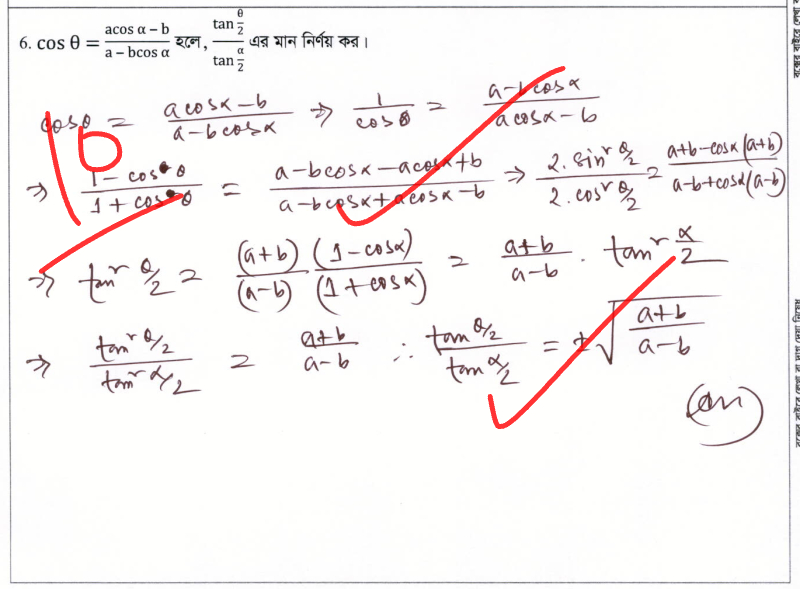 6. cos θ = (acos α − b)/(a − bcos α) হলে, (tan θ/2)/(tan α/2) এর মান নির্ণয় কর।
cosθ = (a cosα − b)/(a − b cosα) ⇒ 1/cosθ = (a − b cosα)/(a cosα − b)
⇒ (1 − cosθ)/(1 + cosθ) = (a − b cosα − a cosα + b)/(a − b cosα + a cosα − b) ⇒ (2.sin² θ/2)/(2.cos² θ/2) = (a+b − cosα(a+b))/(a−b + cosα(a−b))
⇒ tan² θ/2 = ((a+b)/(a−b)) ((1 − cosα)/(1 + cosα)) = (a+b)/(a−b) . tan² α/2
⇒ (tan² θ/2)/(tan² α/2) = (a+b)/(a−b) ∴ (tan θ/2)/(tan α/2) = ±√((a+b)/(a−b))
(Ans)